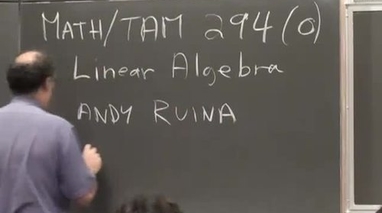 MATH/TAM 294(0)
Linear Algebra
ANDY RUINA